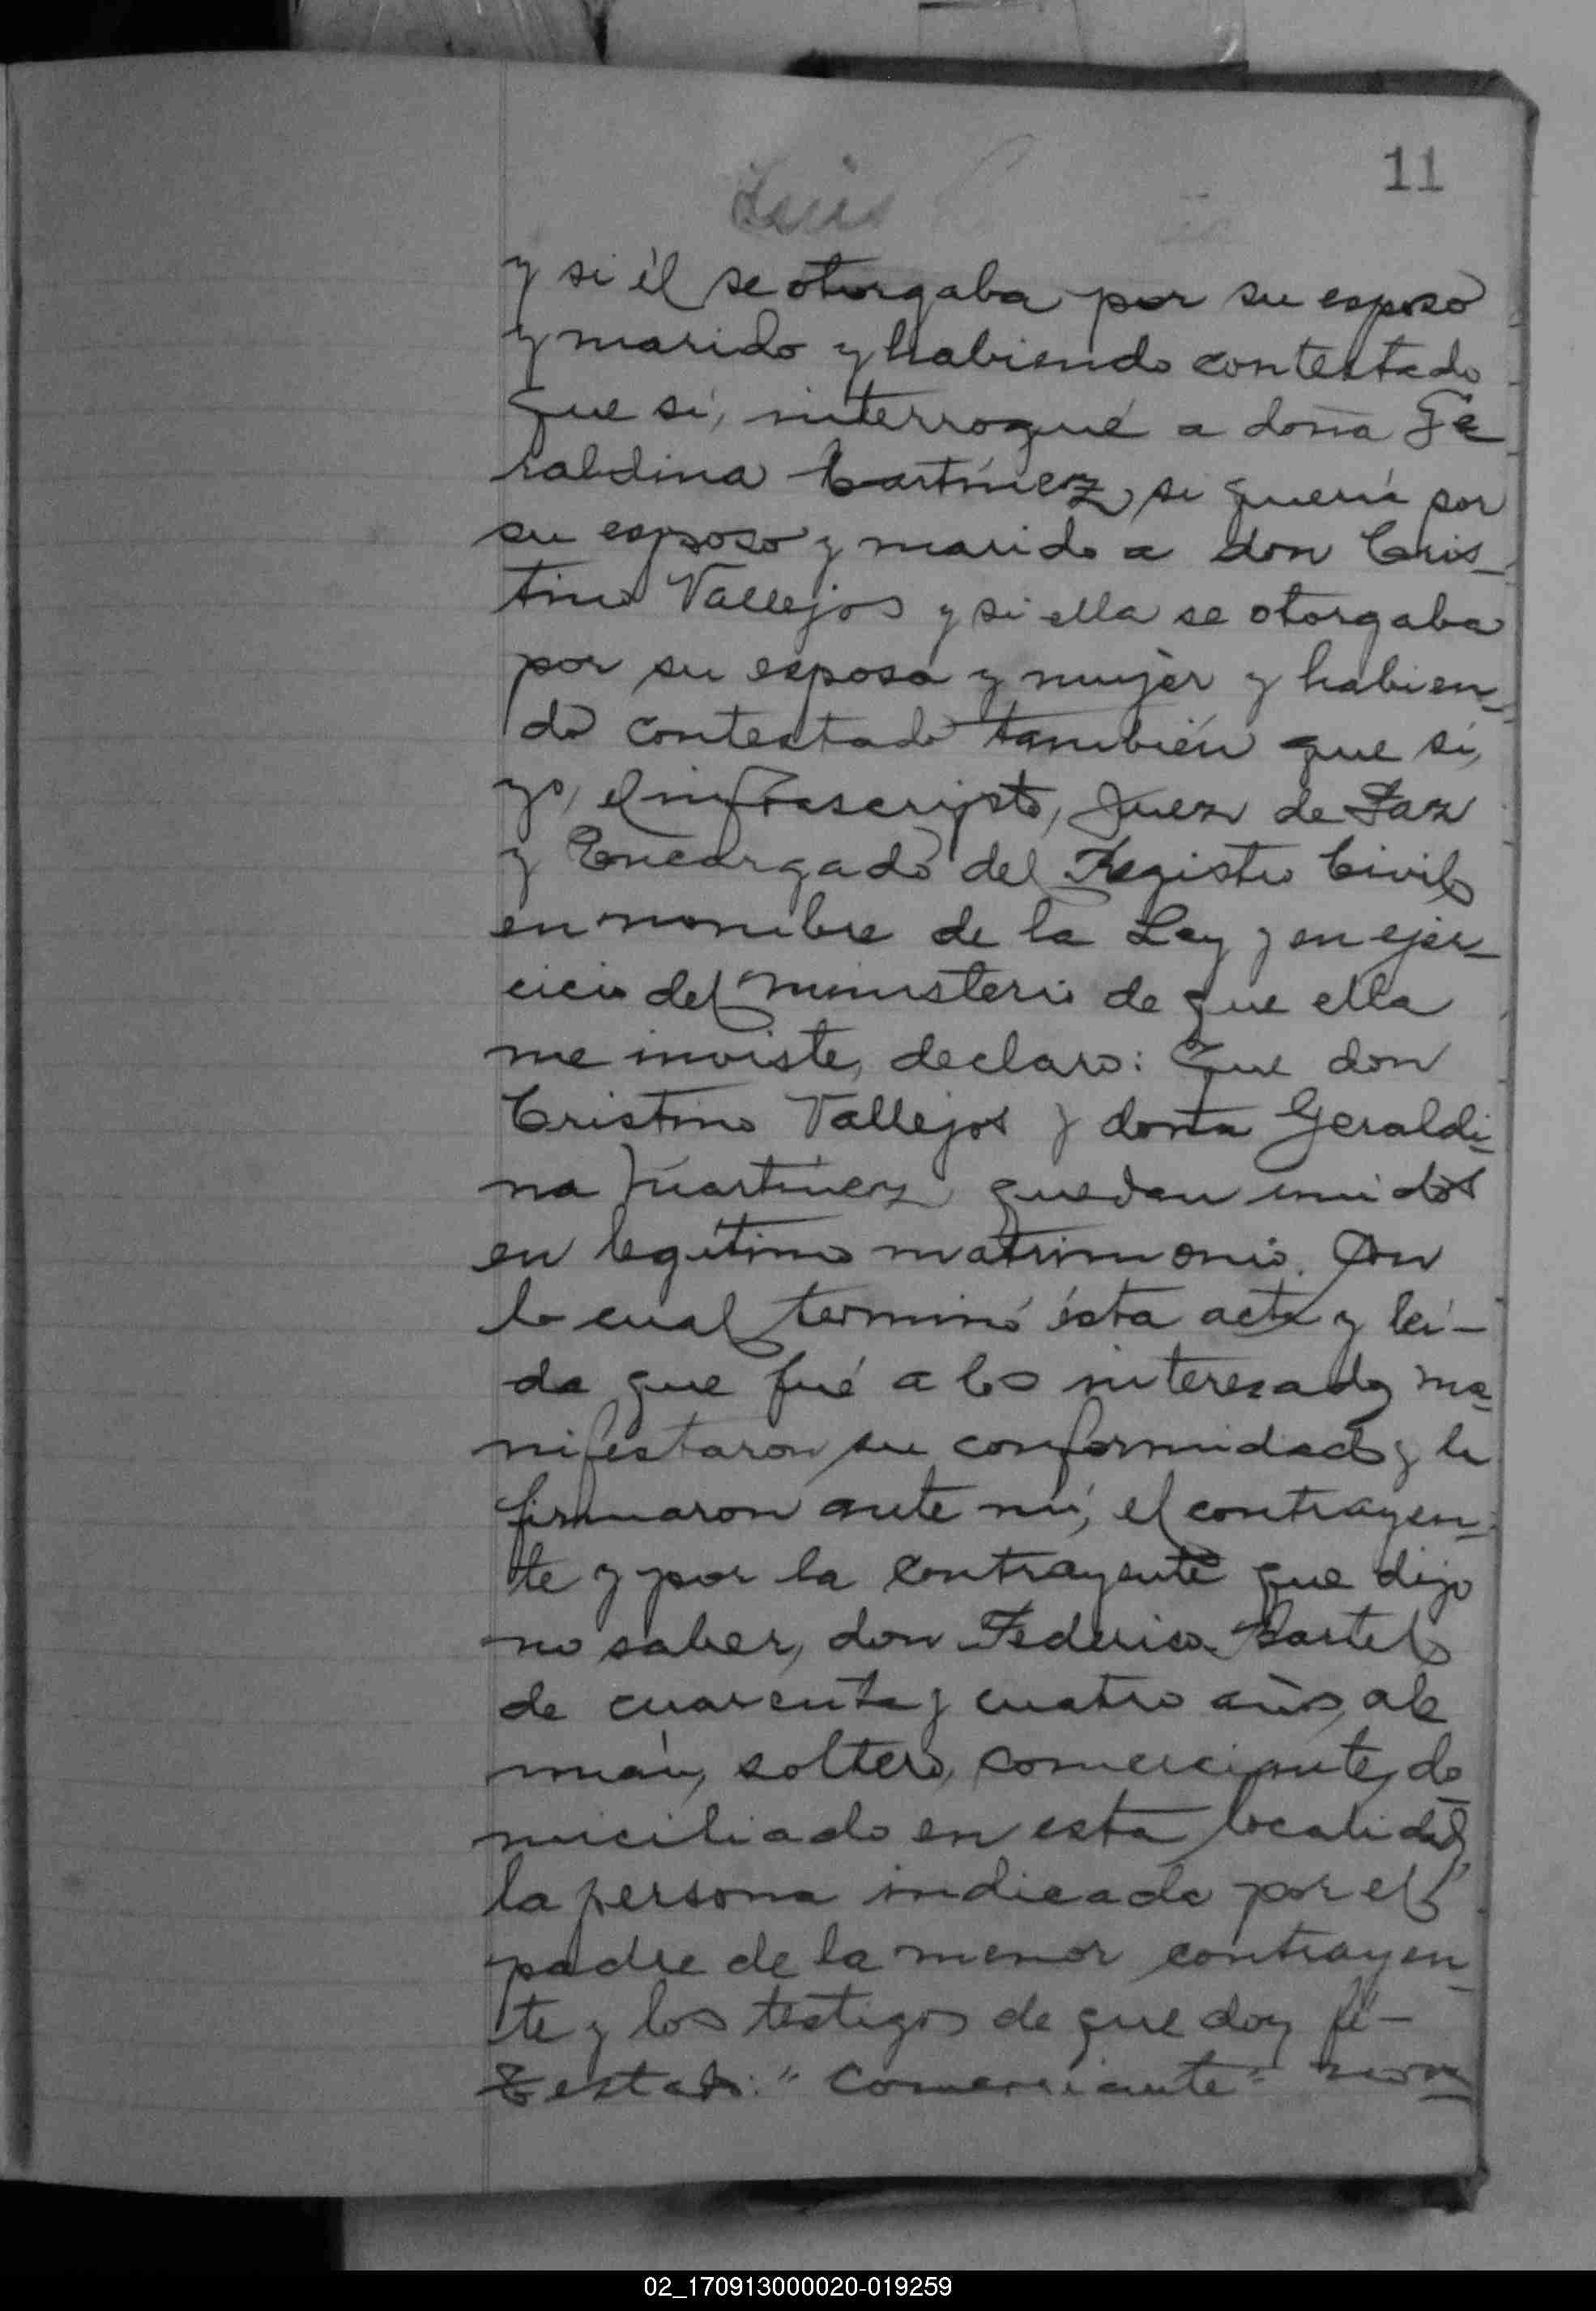 11
Luis
y si él se otorgaba por su esposo
y marido y habiendo contestado
que sí, interrogué a doña Ge
raldina Martínez, si quería por
su esposo y marido a don Cris-
tino Vallejos y si ella se otorgaba
por su esposa y mujer y habien-
do contestado también que sí,
yo, el infrascripto, Juez de Paz
y Encargado del Registro Civil
en nombre de la Ley y en ejer-
cicio del ministerio de que ella
me inviste, declaro: Que don
Cristino Vallejos y doña Geraldi-
na Martínez quedan unidos
en legítimo matrimonio. Con
lo cual terminó ésta acta y leí-
da que fué a los interesados ma-
nifestaron su conformidad y la
firmaron ante mí, el contrayen-
te y por la contrayente que dijo
no saber, don Federico Bartel
de cuarenta y cuatro años, ale
mán, soltero, comerciante, do-
miciliado en esta localidad,
la persona indicada por el
padre de la menor contrayen-
te y los testigos de que doy fé-
Testado: "Comerciante"
02_170913000020-019259